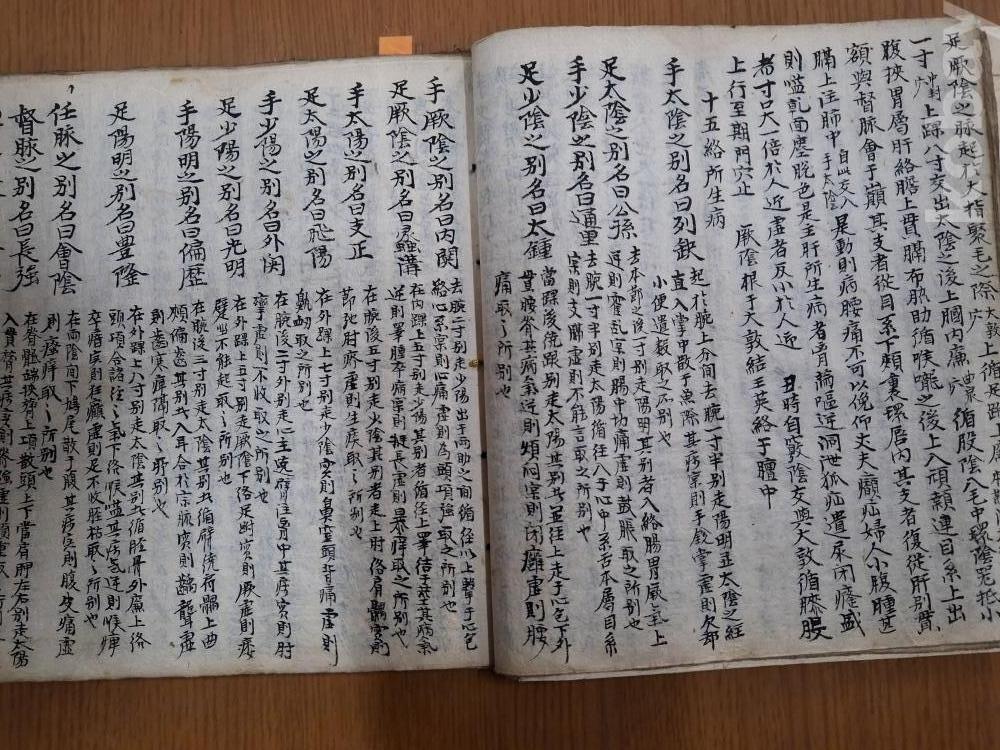 足厥陰之脉起於大指聚毛之際大敦穴上循足趺上
一寸中封穴上踝八寸交出太陰之後上膕內廉曲泉穴循股陰入毛中環陰器抵小
腹挾胃屬肝絡膽上貫膈布脇肋循喉嚨之後上入頏顙連目系上出
額與督脉會于巔其支者從目系下頰裏環唇内其支者復從肝別貫
膈上注肺中自此交入手太陰是動則病腰痛不可以俛仰丈夫㿗疝婦人小腹腫甚
則嗌乾面塵脫色是主肝所生病者胷滿嘔逆洞泄狐疝遺尿閉癃盛
者寸口大一倍於人迎虛者反小於人迎 丑時自竅陰交與大敦循膝股
上行至期門穴止 厥陰根于大敦結玉英絡于膻中
十五絡所生病
手太陰之別名曰列缺 起於腕上分間去腕一寸半別走陽明並太陰之經
直入掌中散于魚際其病實則手銳掌虛則欠㰦
小便遺數取之所別也
足太陰之別名曰公孫 去本節之後一寸別走陽明其別者入絡腸胃厥氣上
逆則霍乱實則腸中切痛虛則鼓脹取之所別也
手少陰之別名曰通里 去腕一寸半別走太陽循徃入于心中系舌本屬目系
實則支膈虛則不能言取之所別也
足少陰之別名曰大鍾 當踝後繞跟別走太陽其別者並徃上走于心包下外
貫腰脊其病氣逆則煩悶實則閉癃虛則腰
痛取之所別也
手厥陰之別名曰内関 去腕二寸別走少陽出于兩肋之間循徑以上繫于心包
絡心系實則心痛虛則為頭項強取之所別也
足厥陰之別名曰蠡溝 在内踝上五寸別走少陽其別者循徑上睪佶于莖其病氣
逆則睪腫卒病實則挺長虛則暴痒取之所別也
手太陽之別名曰支正 在腕後五寸別走少陰其別者走上肘絡肩髃實則
節弛肘廢虛則生疣取之所別也
足太陽之別名曰飛陽 在外踝上七寸別走少陰實則鼻窒頭背痛虛則
鼽衂取之所別也
手少陽之別名曰外関 在腕後二寸外別走心主遶臂注胷中其病實則肘
攣虛則不收取之所別也
足少陽之別名曰光明 在外踝上五寸別走厥陰下絡足跗實則厥虛則痿
躄坐不能起取之所別也
手陽明之別名曰偏歷 在腕後三寸別走太陰其別者循臂繞荷髃上曲
頰偏齒其別者入耳合於宗脉實則齲聾虛
則齒寒痺隔取之所別也
足陽明之別名曰豊隆 在外踝上八寸別走太陰其別者循脛骨外廉上絡
頭項合諸徑之氣下絡喉嗌其病氣逆則喉痺
卒瘖實則狂癲虛則足不收脛枯取之所別也
任脉之別名曰會陰 在兩陰間下鳩尾散于腹其病實則腹皮痛虛
則瘙痒取之所別也
督脉之別名曰長強 在脊骶端挾膂上項散頭上下當肩胛左右別走太陽
入貫膂其病實則脊強虛則頭重取之所別